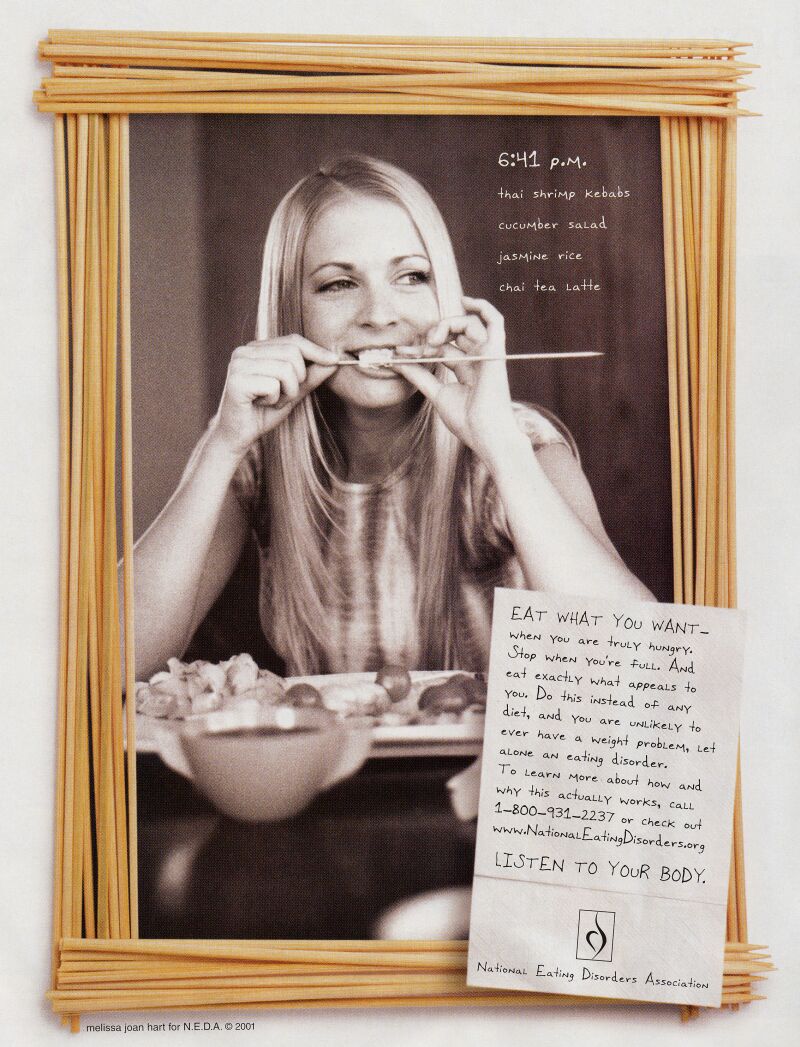 6:41 p.m.
thai shrimp kebabs
cucumber salad
jasmine rice
chai tea latte
EAT WHAT YOU WANT—
when you are truly hungry.
Stop when you're full. And
eat exactly what appeals to
you. Do this instead of any
diet, and you are unlikely to
ever have a weight problem, let
alone an eating disorder.
To learn more about how and
why this actually works, call
1-800-931-2237 or check out
www.NationalEatingDisorders.org
LISTEN TO YOUR BODY.
National Eating Disorders Association
melissa joan hart for N.E.D.A. © 2001